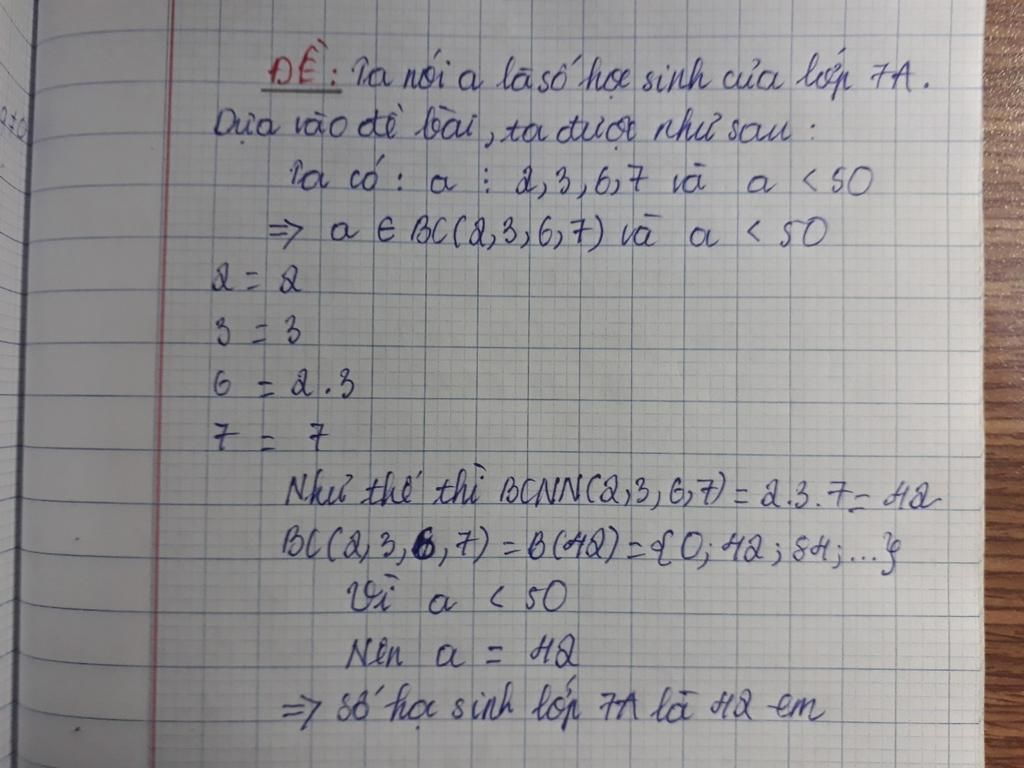 ĐỀ: Ta nói a là số học sinh của lớp 7A.
Dựa vào đề bài, ta được như sau:
Ta có: a ⋮ 2,3,6,7 và a < 50
=> a ∈ BC(2,3,6,7) và a < 50
2 = 2
3 = 3
6 = 2.3
7 = 7
Như thế thì BCNN(2,3,6,7) = 2.3.7 = 42
BC(2,3,6,7) = B(42) = {0; 42; 84; ...}
Vì a < 50
Nên a = 42
=> Số học sinh lớp 7A là 42 em